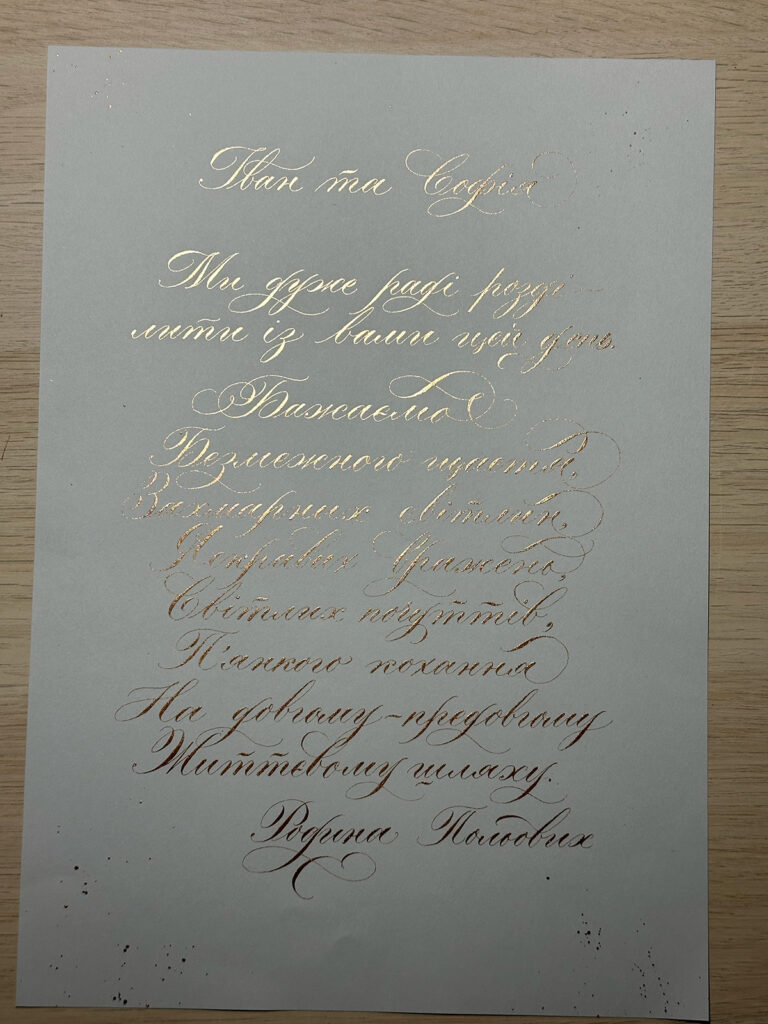 Іван та Софія
Ми дуже раді розді-
лити із вами цей день.
Бажаємо
Безмежного щастя,
Захмарних світлин,
Яскравих вражень,
Світлих почуттів,
П'янкого кохання
На довгому-предовгому
Життєвому шляху.
Родина